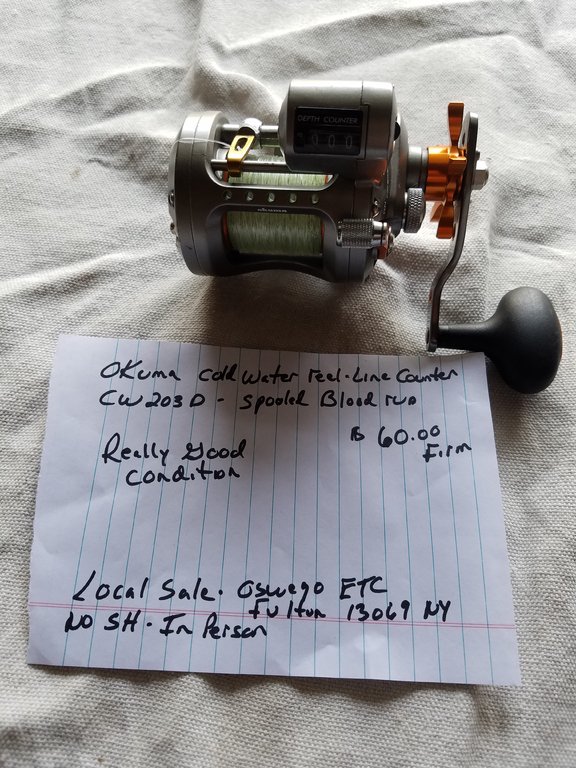 DEPTH COUNTER
000
okuma
OKuma cold water reel-Line Counter
CW203D - Spooled Blood run
$ 60.00
Firm
Really Good
condition
Local Sale. Oswego ETC
Fulton 13069 NY
NO SH. In Person